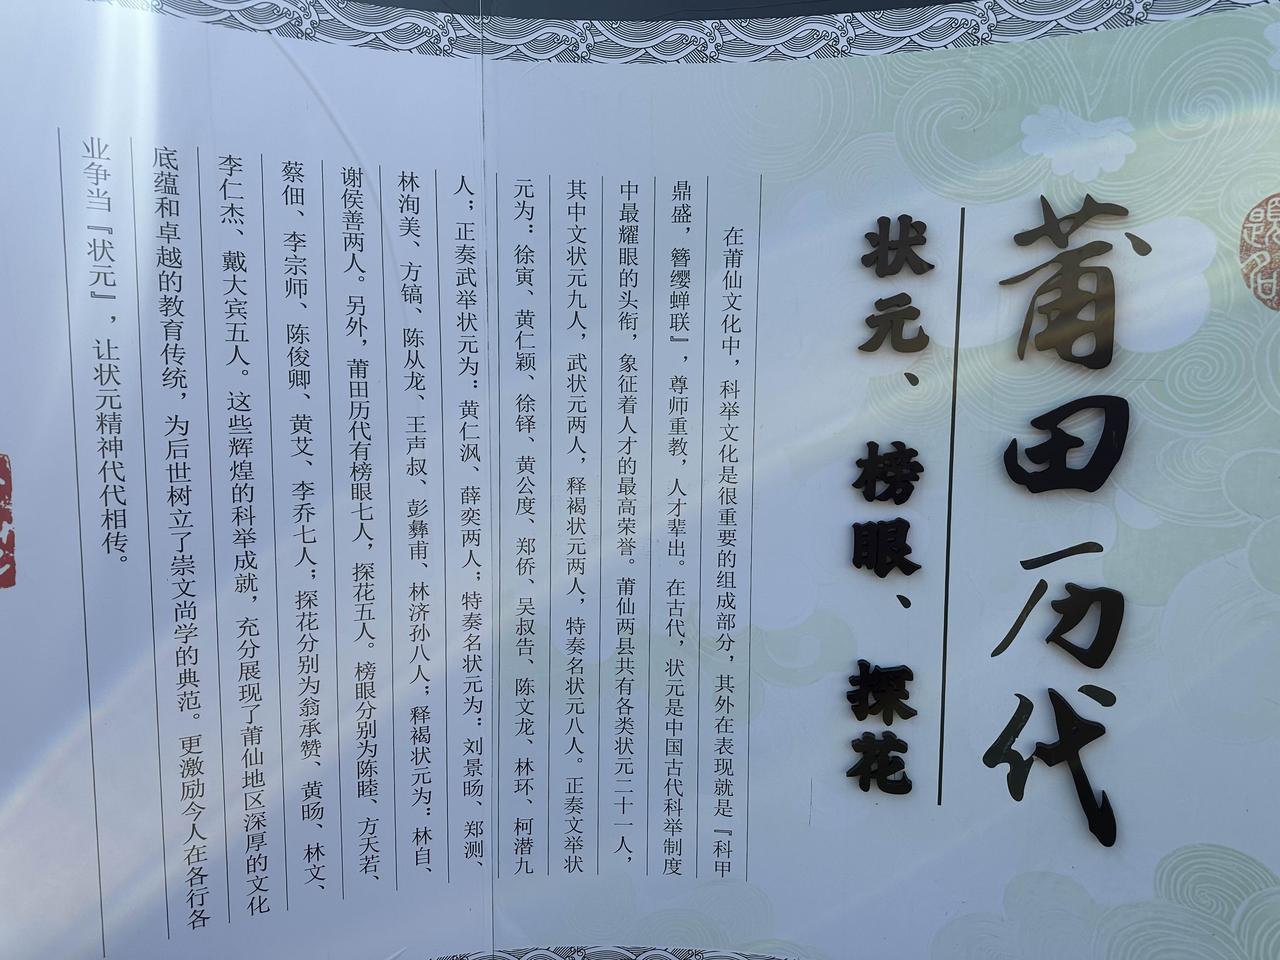 莆田历代
状元、榜眼、探花
在莆仙文化中，科举文化是很重要的组成部分，其外在表现就是『科甲
鼎盛，簪缨蝉联』，尊师重教，人才辈出。在古代，状元是中国古代科举制度
中最耀眼的头衔，象征着人才的最高荣誉。莆仙两县共有各类状元二十一人，
其中文状元九人，武状元两人，释褐状元两人，特奏名状元八人。正奏文举状
元为：徐寅、黄仁颖、徐铎、黄公度、郑侨、吴叔告、陈文龙、林环、柯潜九
人；正奏武举状元为：黄仁沨、薛奕两人；特奏名状元为：刘景旸、郑测、
林洵美、方镐、陈从龙、王声叔、彭彝甫、林济孙八人；释褐状元为：林自、
谢侯善两人。另外，莆田历代有榜眼七人，探花五人。榜眼分别为陈睦、方天若、
蔡佃、李宗师、陈俊卿、黄艾、李乔七人；探花分别为翁承赞、黄旸、林文、
李仁杰、戴大宾五人。这些辉煌的科举成就，充分展现了莆仙地区深厚的文化
底蕴和卓越的教育传统，为后世树立了崇文尚学的典范。更激励今人在各行各
业争当『状元』，让状元精神代代相传。